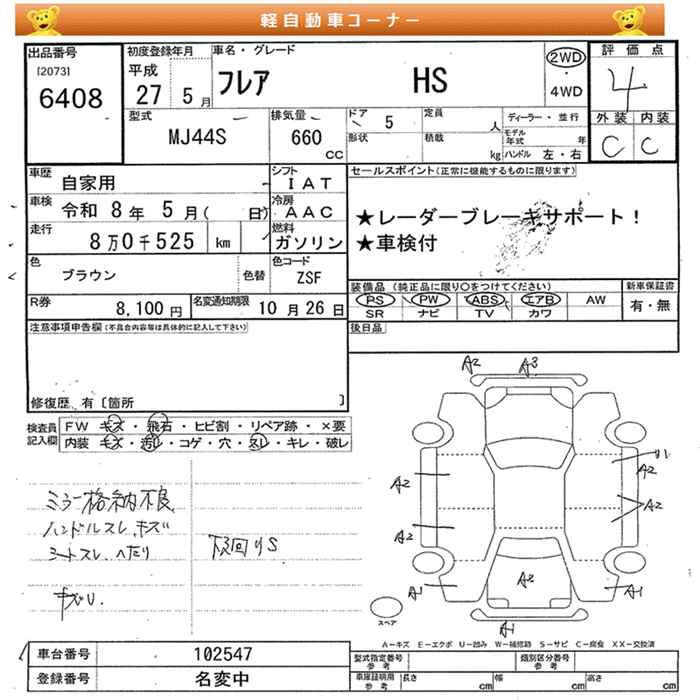 軽自動車コーナー
出品番号
[2073]
6408
初度登録年月
平成
27 5月
車名・グレード
フレア HS
2WD
・
4WD
評価点
4
外装 内装
C C
型式
MJ44S
排気量
660
CC
ドア 5
形状
定員 人
積載 kg
ディーラー・並行
モデル年式 年
ハンドル 左・右
車歴
自家用
シフト
IAT
車検 令和 8年 5月( 日)
冷房
AAC
走行
8万0千525 km
燃料
ガソリン
色
ブラウン
色替
色コード
ZSF
R券
8,100円
名変通知期限
10月26日
セールスポイント(正常に機能するものに限ります)
★レーダーブレーキサポート!
★車検付
装備品(純正品に限り○をつけてください)
PS PW ABS エアB AW
SR ナビ TV カワ
新車保証書
有・無
後日品
注意事項申告欄(不具合内容等は具体的に記入して下さい)
修復歴 有〔箇所 〕
検査員記入欄
FW キズ・飛石・ヒビ割・リペア跡・×要
内装 キズ・汚レ・コゲ・穴・スレ・キレ・破レ
ミラー格納不良
ハンドルスレ、キズ
シートスレ、ヘタリ
下回りS
キズU
A2 A3
A2
A2
A2
A2
A2
A1
A1
A1
スペア
A-キズ E-エクボ U-凹み W-補修跡 S-サビ C-腐食 XX-交換済
車台番号 102547
登録番号 名変中
型式指定番号
参考
類別区分番号
参考
車庫証明用
参考
長さ cm 幅 cm 高さ cm